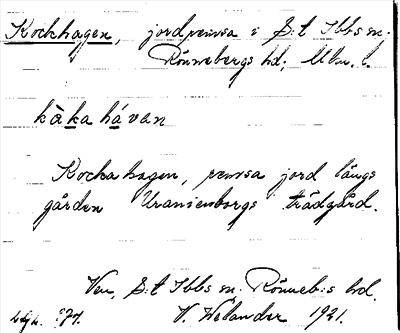 Kockhagen, jordremsa i S:t Ibbs sn.
Rönnebergs hd, Mlm. l.
kàka hávan
Kockahagen, remsa jord längs
gården Uranienborgs trädgård.
Ven, S:t Ibbs sn. Rönneb:s hd.
V. Welander 1921.